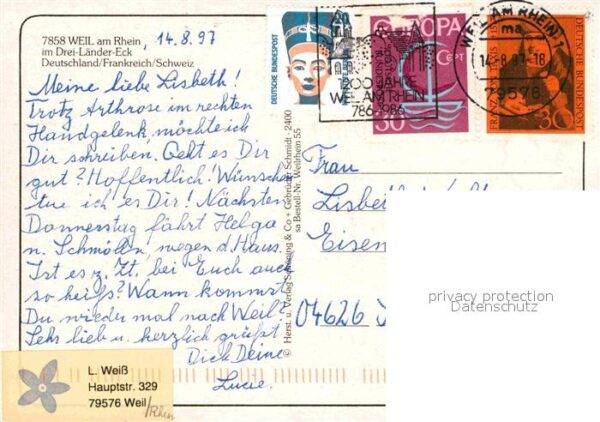 7858 WEIL am Rhein
im Drei-Länder-Eck
Deutschland/Frankreich/Schweiz
14.8.97
Meine liebe Lisbeth!
Trotz Arthrose im rechten
Handgelenk, möchte ich
Dir schreiben. Geht es Dir
gut? Hoffentlich! Wünschen
tue ich es Dir! Nächsten
Donnerstag fährt Helga
n. Schmölln, wegen d. Haus.
Ist es z. Zt. bei Euch auch
so heiß? Wann kommst
Du wieder mal nach Weil?
Sehr lieb u. herzlich grüßt
Dich Deine
Lucie.
L. Weiß
Hauptstr. 329
79576 Weil/Rhein
© Herst. u. Verlag Schöning & Co + Gebrüder Schmidt · 2400
sa Bestell-Nr. Weilrhein 55
DEUTSCHE BUNDESPOST
20
1200 JAHRE
WEIL AM RHEIN
786-1986
EUROPA
CEPT
30
WEIL AM RHEIN 1
ma
14.-8.97-18
79576
DEUTSCHE BUNDESPOST
30
Frau
Lisbeth
Eisen
04626
privacy protection
Datenschutz